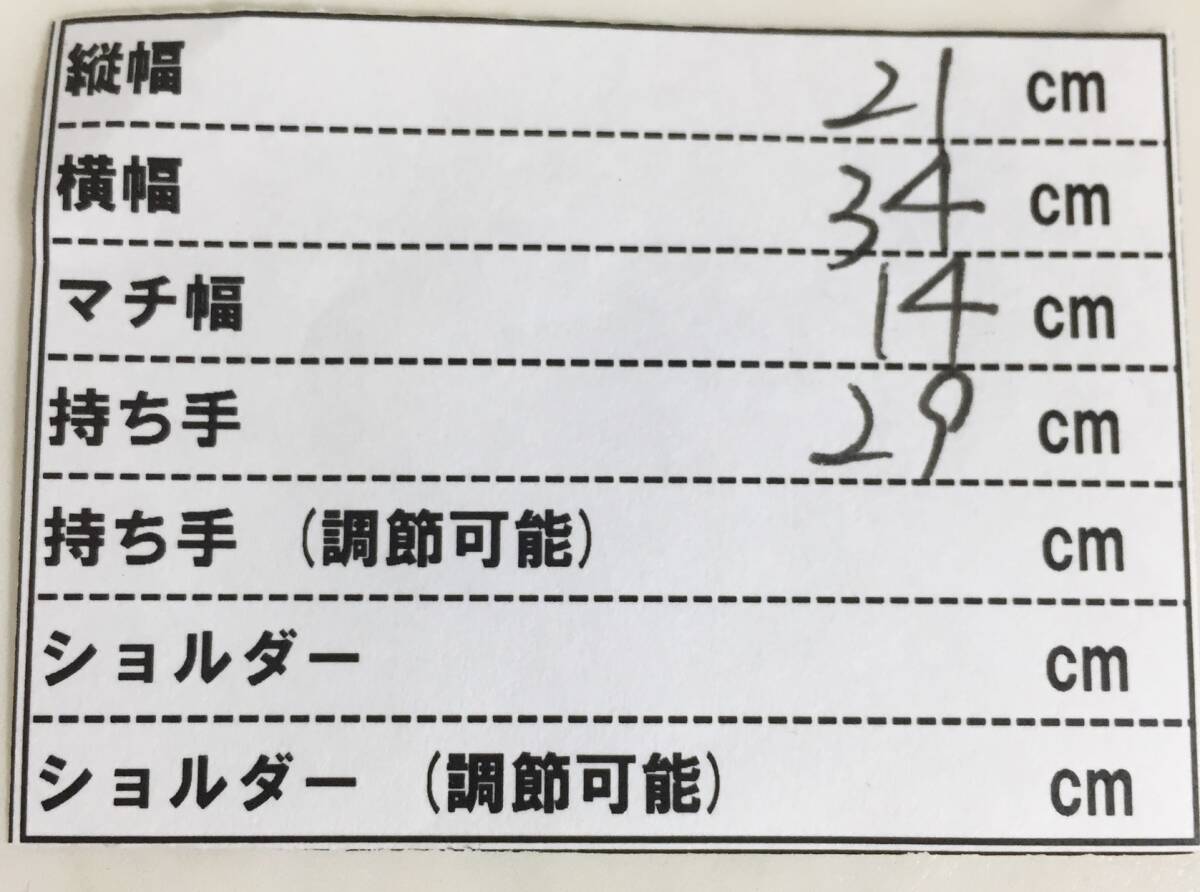 縦幅 21 cm
横幅 34 cm
マチ幅 14 cm
持ち手 29 cm
持ち手 (調節可能) cm
ショルダー cm
ショルダー (調節可能) cm